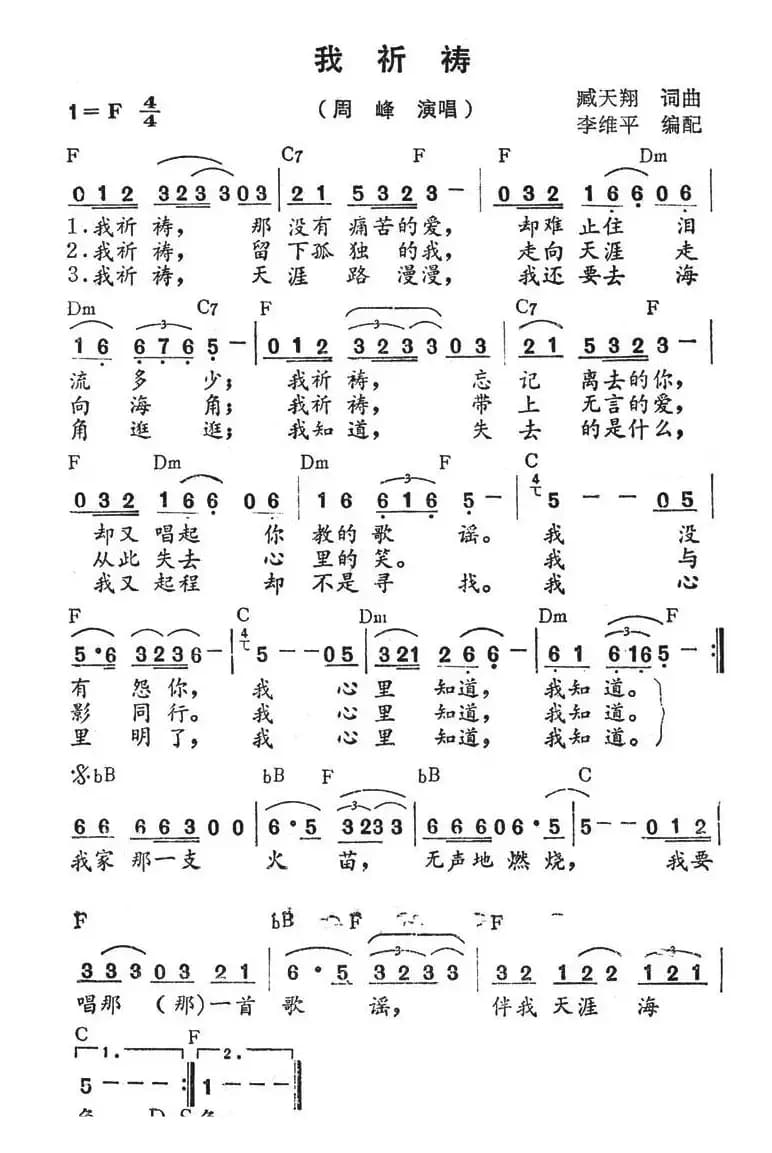 我祈祷
1=F 4/4 (周 峰 演唱) 臧天翔 词曲
李维平 编配
F C7 F F Dm
0 1 2 3 2 3 3 0 3 | 2 1 5 3 2 3 — | 0 3 2 1 6 6 0 6 |
1.我祈祷, 那没有痛苦的爱, 却难止住泪
2.我祈祷, 留下孤独的我, 走向天涯走
3.我祈祷, 天涯路漫漫, 我还要去海
Dm C7 F C7 F
1 6 6 7 6 5 — | 0 1 2 3 2 3 3 0 3 | 2 1 5 3 2 3 — |
3 3
流多少; 我祈祷, 忘记离去的你,
向海角; 我祈祷, 带上无言的爱,
角逛逛; 我知道, 失去的是什么,
F Dm Dm F C
0 3 2 1 6 6 0 6 | 1 6 6 1 6 5 — | 5 — — 0 5 |
却又唱起你教的歌谣。我没
从此失去心里的笑。我与
我又起程却不是寻找。我心
F C Dm Dm F
5 • 6 3 2 3 6 — | 5 — 0 5 | 3 2 1 2 6 6 | 6 1 6 1 6 5 — :‖
有怨你, 我心里知道, 我知道。
影同行。我心里知道, 我知道。
里明了, 我心里知道, 我知道。
bB bB F bB C
6 6 6 6 3 0 0 | 6 • 5 3 2 3 3 | 6 6 6 0 6 • 5 | 5 — — 0 1 2 |
我家那一支火苗, 无声地燃烧, 我要
F bB F F
3 3 3 0 3 2 1 | 6 • 5 3 2 3 3 | 3 2 1 2 2 1 2 1 |
唱那(那)一首歌谣, 伴我天涯海
C F
1. 2.
5 — — — :‖ 1 — — — ‖
D.S.